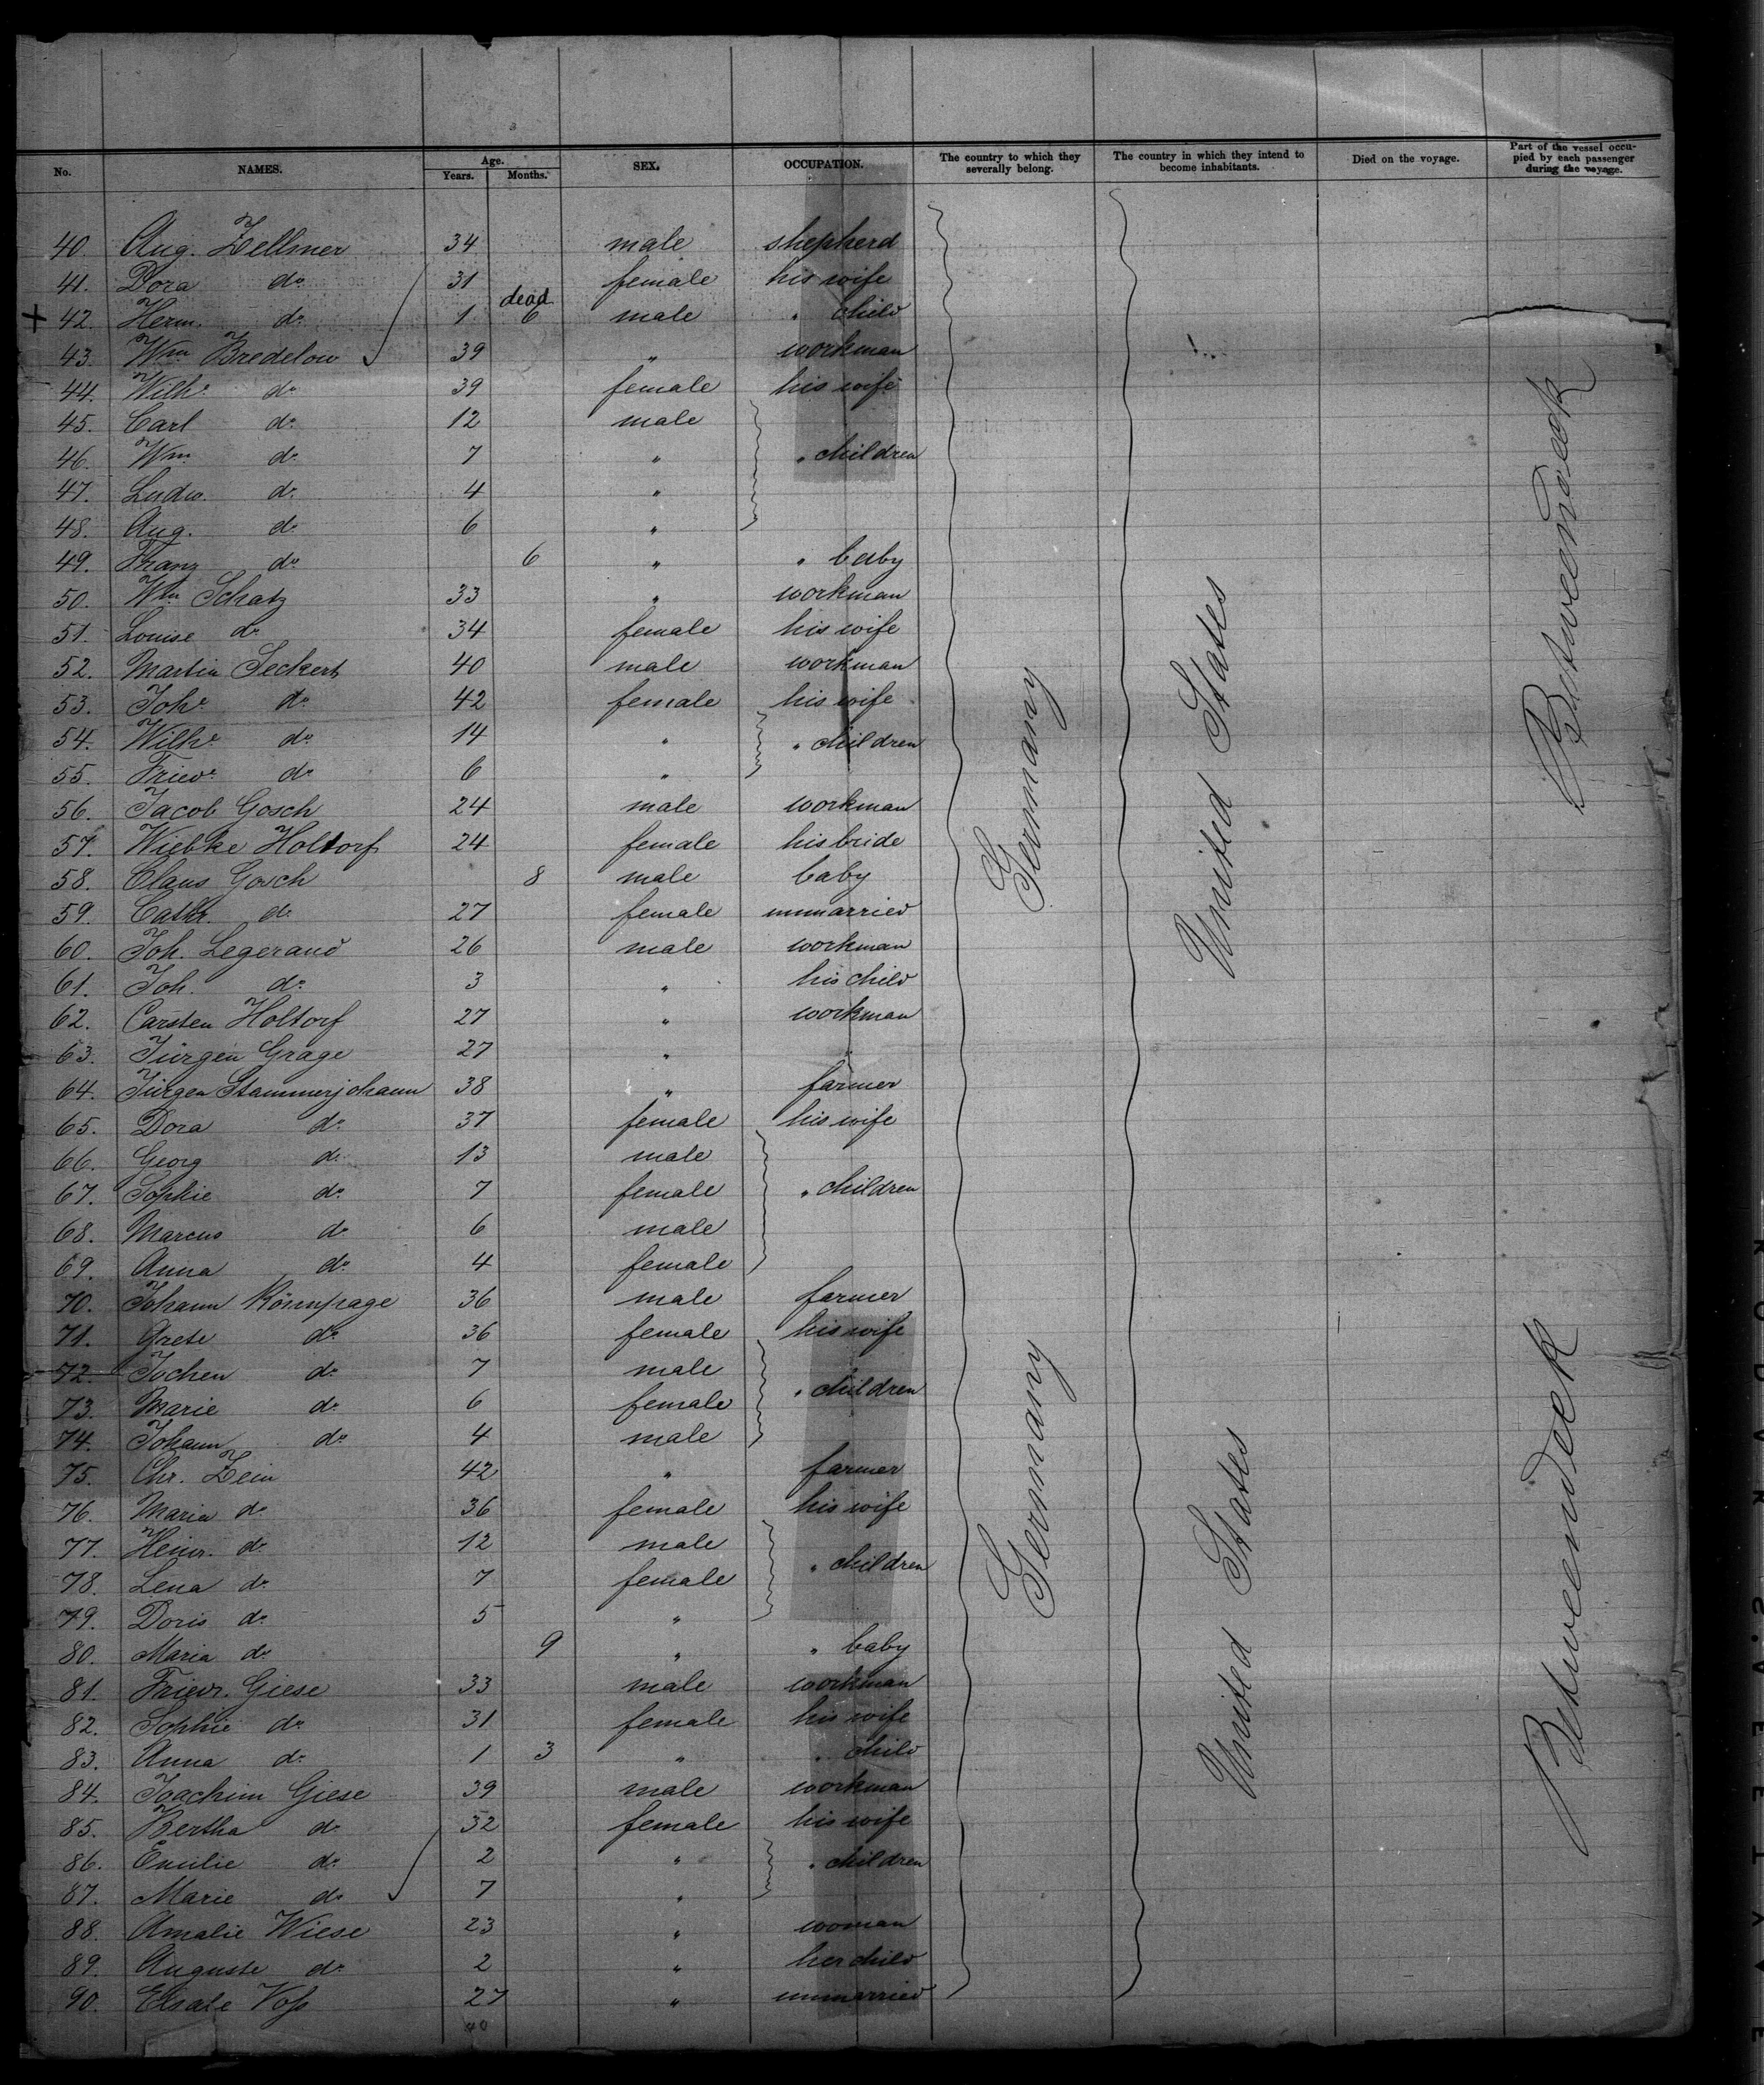 No. NAMES. Age. Years. Months. SEX. OCCUPATION. The country to which they severally belong. The country in which they intend to become inhabitants. Died on the voyage. Part of the vessel occupied by each passenger during the voyage.
40. Aug. Zellmer 34 male shepherd
41. Dora do. 31 female his wife
dead
+ 42. Herm. do. 1 6 male " child
43. Wm Bredelow 39 " workman
44. Wilhe. do. 39 female his wife
45. Carl do. 12 male
46. Wm. do. 7 " " children
47. Ludw. do. 4 "
48. Aug. do. 6 "
49. Franz do. 6 " " baby
50. Wm Schatz 33 " workman
51. Louise do. 34 female his wife
52. Martin Seckert 40 male workman
53. Johe. do. 42 female his wife
54. Wilhe. do. 14 " " children
55. Friede. do. 6 "
56. Jacob Gosch 24 male workman
57. Wiebke Holtorf 24 female his bride
58. Claus Gosch 8 male baby
59. Cathr. do. 27 female unmarried
60. Joh. Legerand 26 male workman
61. Joh. do. 3 " his child
62. Carsten Holtorf 27 " workman
63. Jürgen Grage 27 " "
64. Jürgen Stammerjohann 38 " farmer
65. Dora do. 37 female his wife
66. Georg do. 13 male
67. Sophie do. 7 female " children
68. Marcus do. 6 male
69. Anna do. 4 female
70. Johann Rönnpage 36 male farmer
71. Grete do. 36 female his wife
72. Jochen do. 7 male
73. Marie do. 6 female " children
74. Johann do. 4 male
75. Chr. Zein 42 " farmer
76. Maria do. 36 female his wife
77. Heinr. do. 12 male
78. Lena do. 7 female " children
79. Doris do. 5 "
80. Maria do. 9 " " baby
81. Friedr. Giese 33 male workman
82. Sophie do. 31 female his wife
83. Anna do. 1 3 " " child
84. Joachim Giese 39 male workman
85. Bertha do. 32 female his wife
86. Emilie do. 2 " " children
87. Marie do. 7 "
88. Amalie Wiese 23 " woman
89. Auguste do. 2 " her child
90. Elsabe Voß 27 " unmarried
Germany
United States
Betweendeck
Germany
United States
Betweendeck